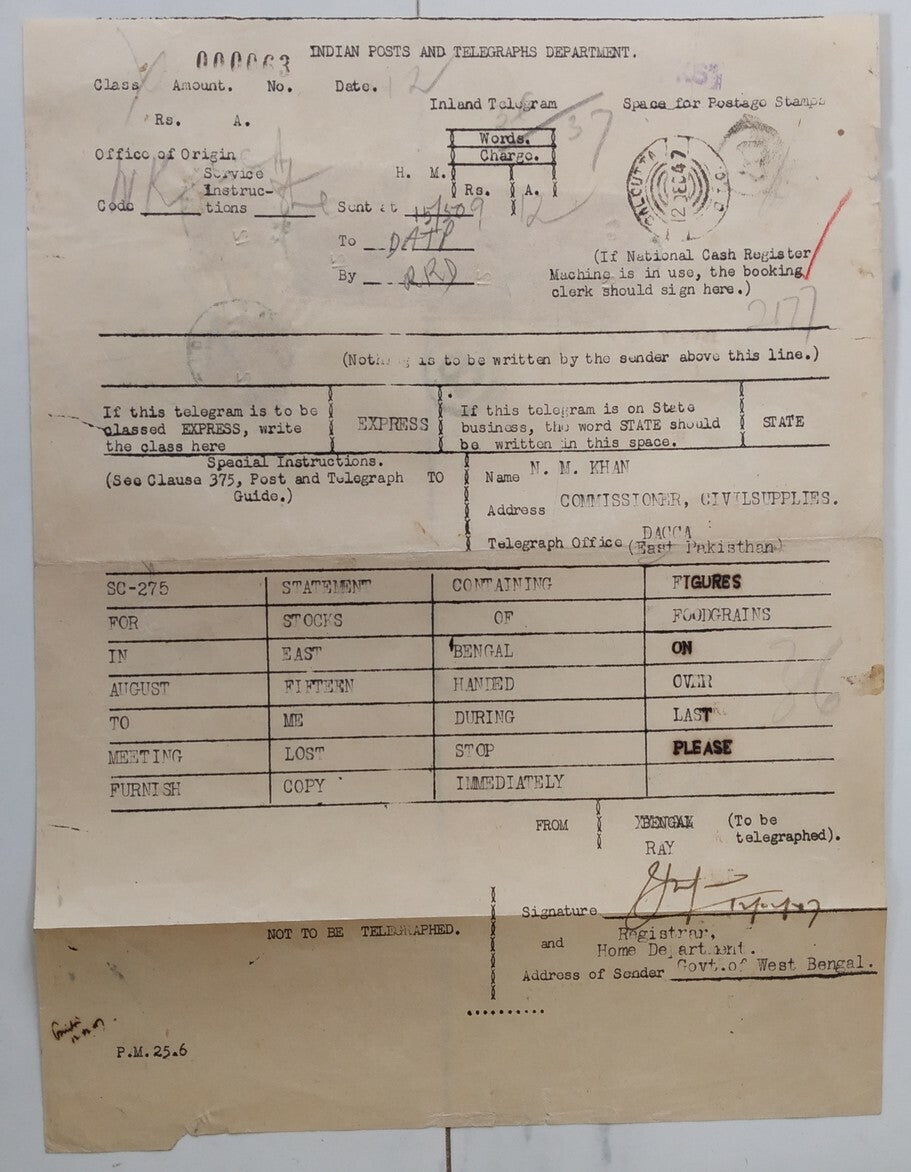 000063 INDIAN POSTS AND TELEGRAPHS DEPARTMENT.
Class Amount. No. Date. 12
Inland Telegram Space for Postage Stamps
Rs. A.
37
Words.
Charge.
Office of Origin
Service H. M. Rs. A.
Instruc-
Code tions Sent at 15/30 9 12
CALCUTTA G.P.O
12 DEC 47
To DATP
By RRD
(If National Cash Register
Machine is in use, the booking
clerk should sign here.)
2177
(Nothing is to be written by the sender above this line.)
If this telegram is to be
classed EXPRESS, write
the class here
EXPRESS
If this telegram is on State
business, the word STATE should
be written in this space.
STATE
Special Instructions.
(See Clause 375, Post and Telegraph
Guide.)
TO
Name N. M. KHAN
Address COMMISSIONER, CIVILSUPPLIES.
DACCA
Telegraph Office (East Pakisthan)
SC-275 STATEMENT CONTAINING FIGURES
FOR STOCKS OF FOODGRAINS
IN EAST BENGAL ON
AUGUST FIFTEEN HANDED OVER
TO ME DURING LAST
MEETING LOST STOP PLEASE
FURNISH COPY IMMEDIATELY
36
FROM BENGAL (To be
telegraphed).
RAY
Signature 12/12/47
NOT TO BE TELEGRAPHED.
and Registrar,
Home Department.
Address of Sender Govt.of West Bengal.
P.M.25.6